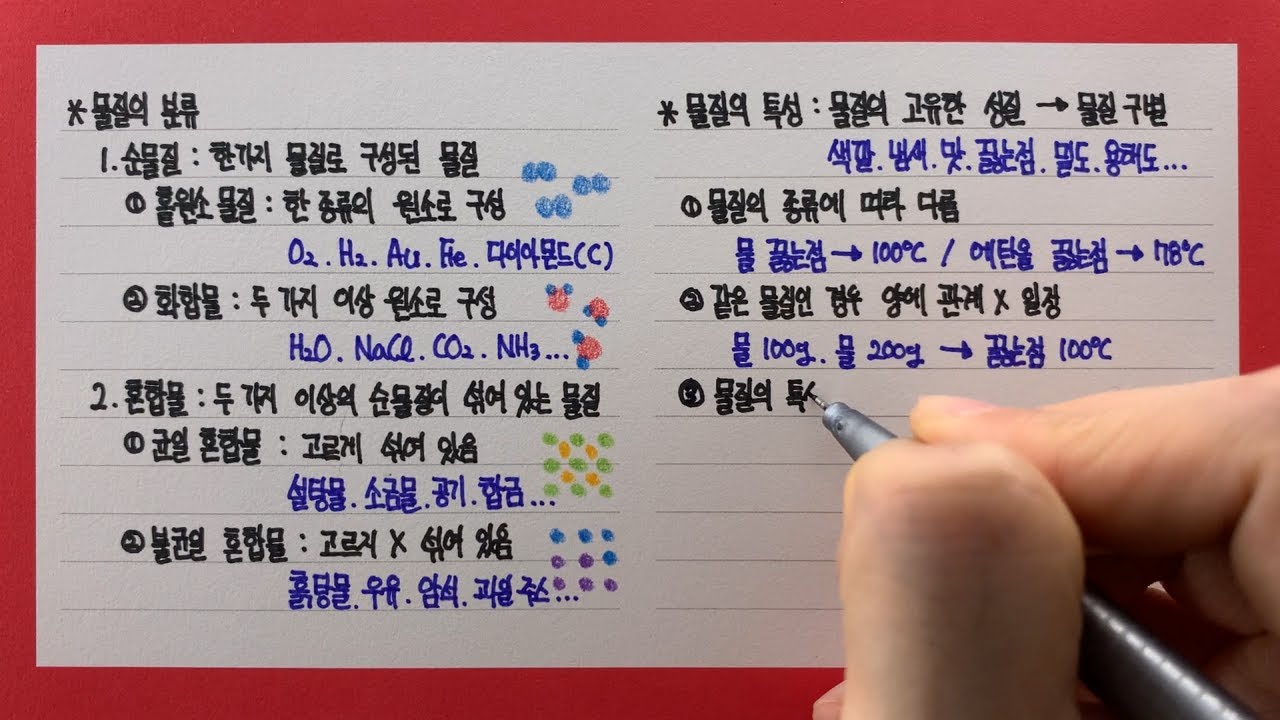 * 물질의 분류
1. 순물질 : 한가지 물질로 구성된 물질
① 홑원소 물질 : 한 종류의 원소로 구성
O2. H2. Au. Fe. 다이아몬드(C)
② 화합물 : 두 가지 이상 원소로 구성
H2O. NaCl. CO2. NH3...
2. 혼합물 : 두 가지 이상의 순물질이 섞여 있는 물질
① 균일 혼합물 : 고르게 섞여 있음
설탕물. 소금물. 공기. 합금...
② 불균일 혼합물 : 고르지 X 섞여 있음
흙탕물. 우유. 암석. 과일 주스...
* 물질의 특성 : 물질의 고유한 성질 → 물질 구별
색깔. 냄새. 맛. 끓는점. 밀도. 용해도...
① 물질의 종류에 따라 다름
물 끓는점 → 100℃ / 에탄올 끓는점 → 78℃
② 같은 물질인 경우 양에 관계 X 일정
물 100g. 물 200g → 끓는점 100℃
③ 물질의